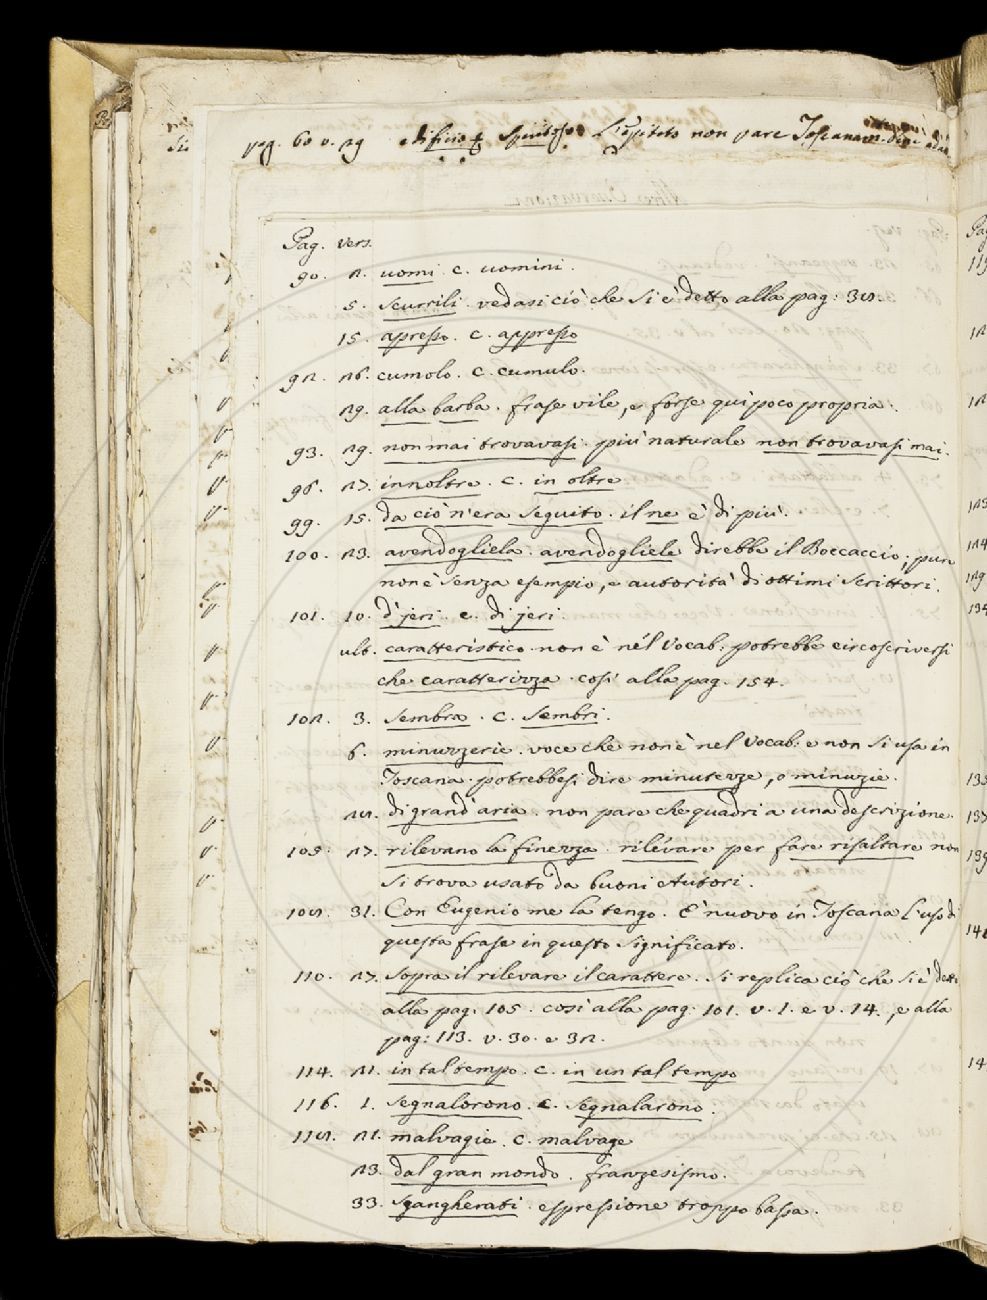 pag. 60 v. 29 edificio e Spiritoso L'epiteto non pare Toscanam.
Pag. vers.
90. 2. uomi. c. uomini.
5. scurrili. vedasi ciò che si è detto alla pag: 38.
15. apresso. c. appresso
92. 26. cumolo. c. cumulo.
29. alla barba. frase vile, e forse qui poco propria.
93. 29. non mai trovavasi. più naturale non trovavasi mai.
96. 27. innoltre. c. in oltre
99. 15. da ciò n'era seguito. il ne è di più.
100. 23. avendogliela. avendogliele direbbe il Boccaccio; pure
non è senza esempio, e autorità di ottimi scrittori.
101. 10. d'jeri. c. di jeri.
ult. caratteristico non è nel Vocab. potrebbe circoscriversi
che caratterizza. così alla pag. 154.
102. 3. sembra. c. sembri.
6. minuzzerie. voce che non è nel Vocab. e non si usa in
Toscana. potrebbesi dire minutezze, o minuzie.
28. di grand'aria. non pare che quadri a una descrizione.
105. 27. rilevano la finezza. rilevare per fare risaltare non
si trova usato da buoni Autori.
108. 31. Con Eugenio me la tengo. È nuovo in Toscana l'uso di
questa frase in questo significato.
110. 27. Sopra il rilevare il carattere. Si replica ciò che si è detto
alla pag. 105. così alla pag. 101. v. 1. e v. 14., e alla
pag: 113. v. 30. e 32.
114. 21. in tal tempo. c. in un tal tempo
116. 1. segnalorono. c. segnalarono.
118. 21. malvagie. c. malvage
23. dal gran mondo. franzesismo.
33. sgangherati. espressione troppo bassa.